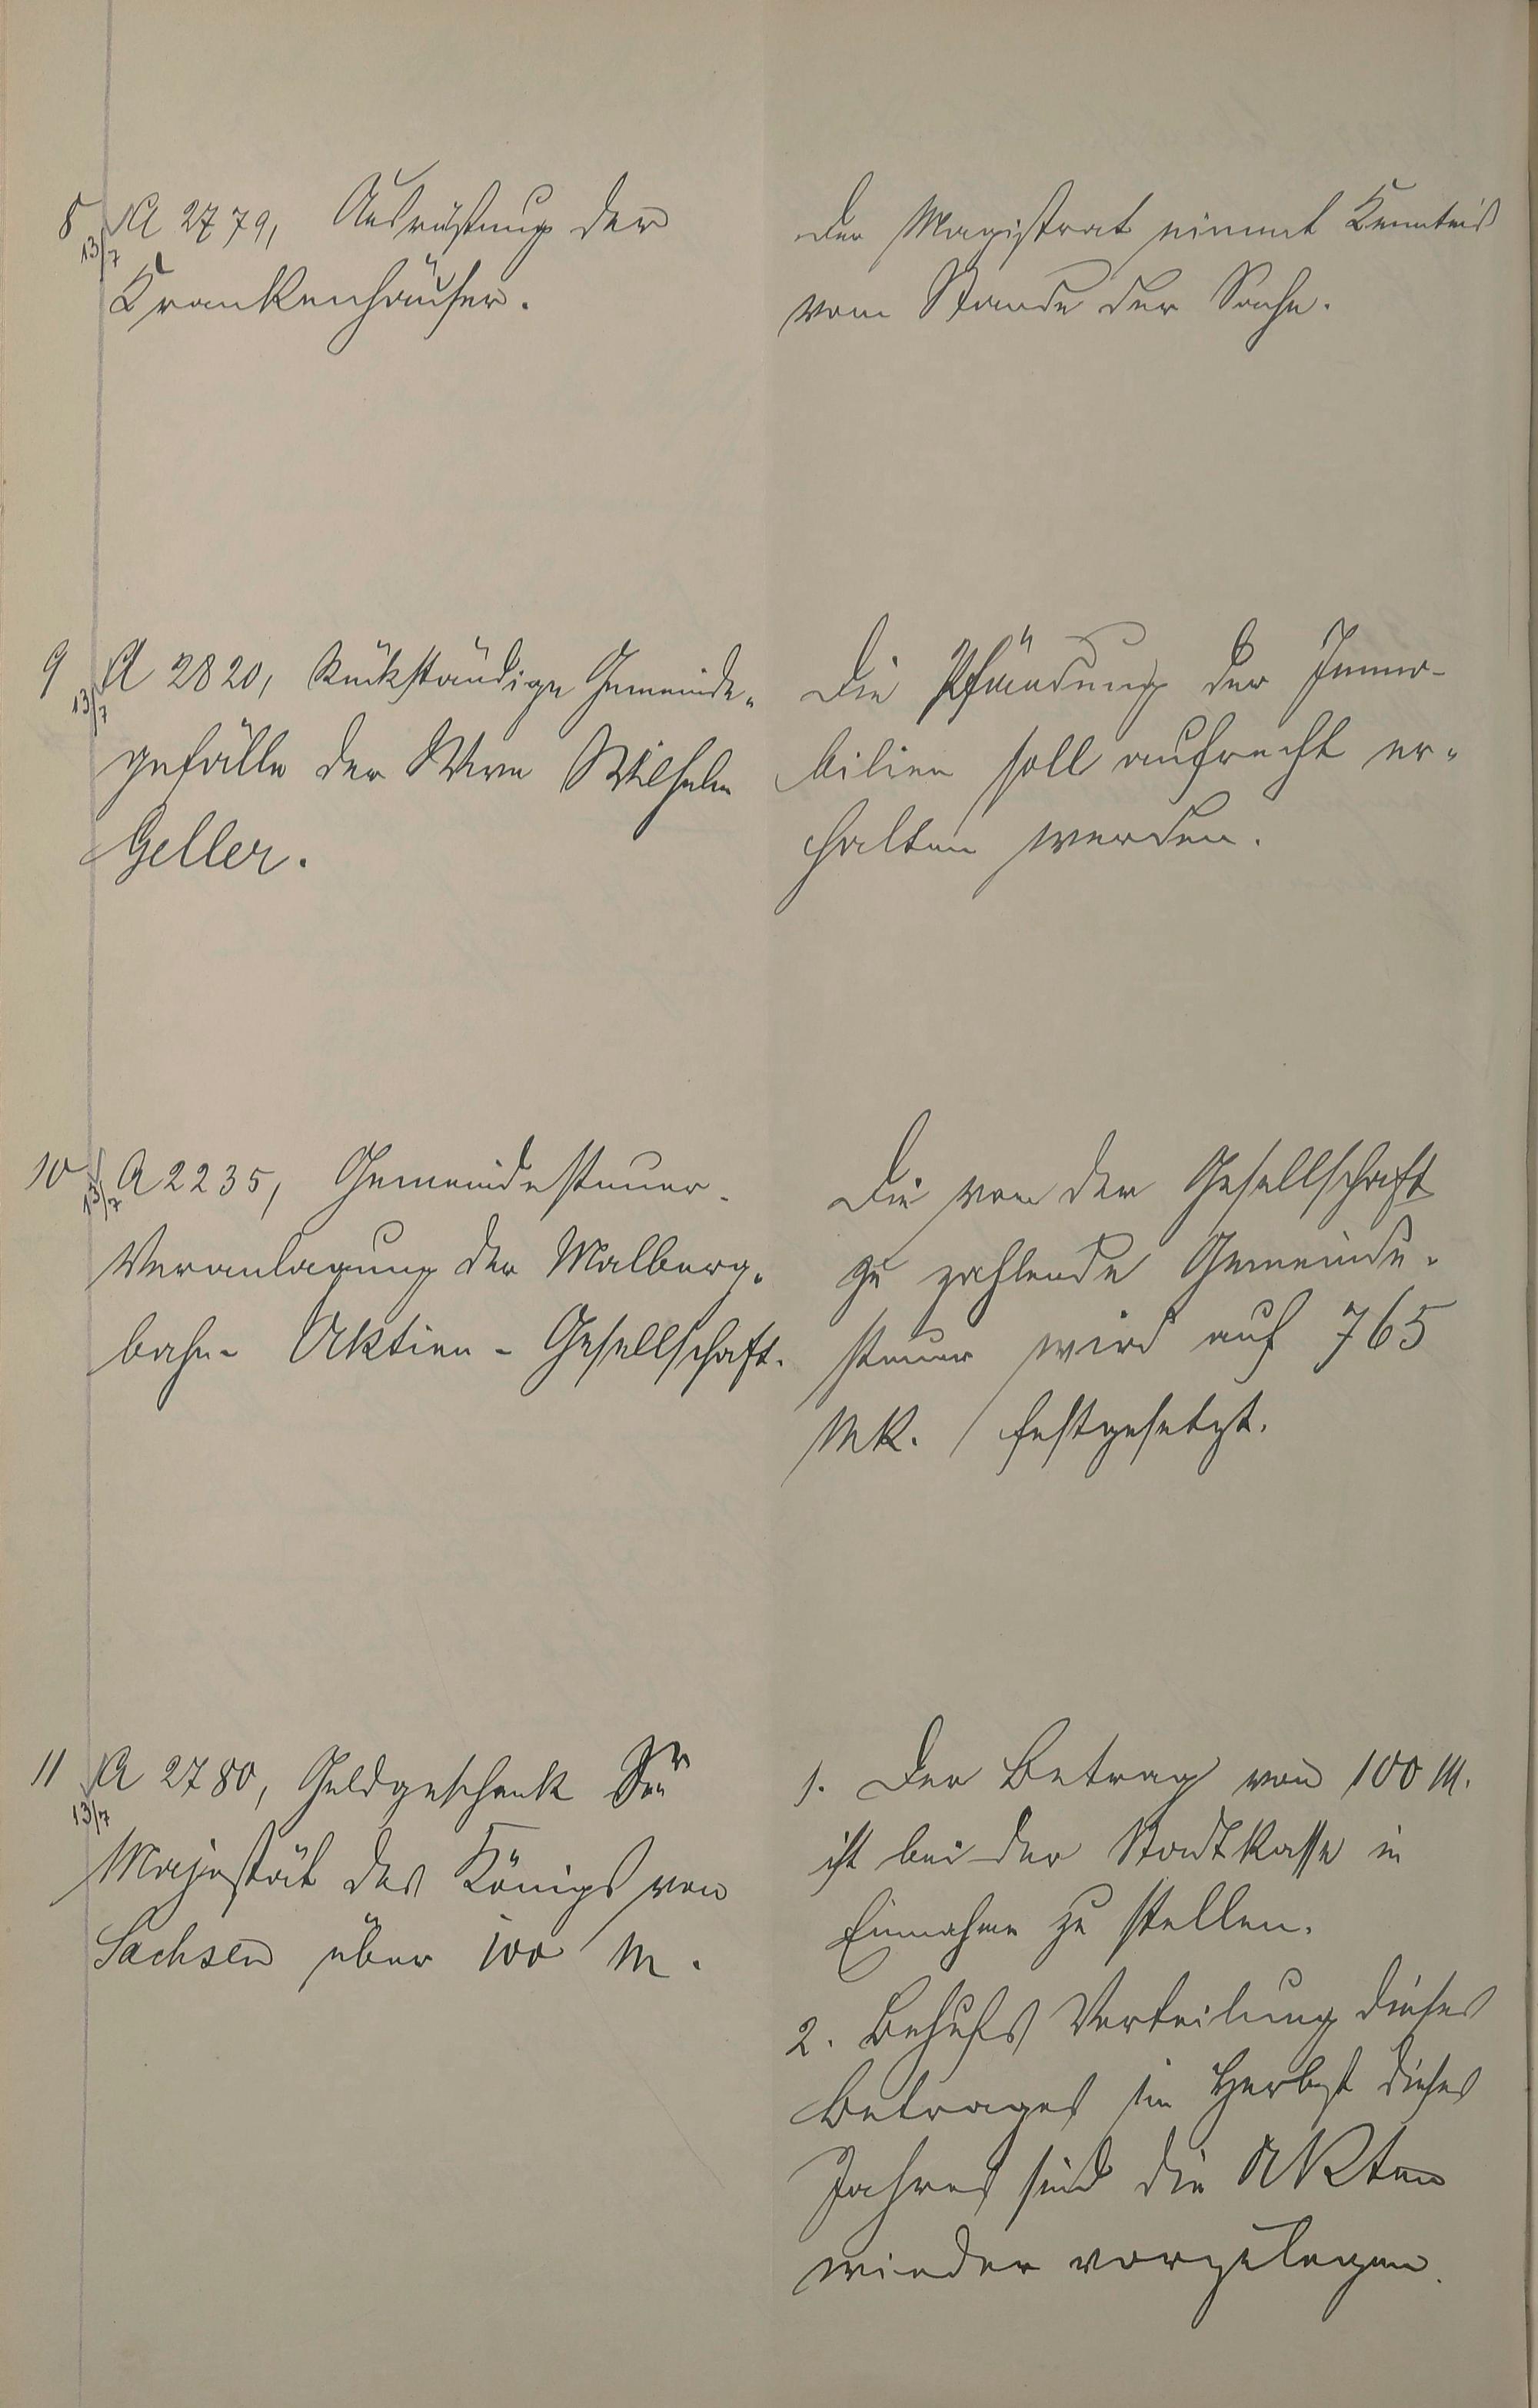 8 A 2779, Ausrüstung der
13/7
Krankenhäuser.
Der Magistrat nimmt Kenntniß
vom Stande der Sache.
9 A 2820, Rückständige Gemeinde-
13/7
gefälle der Wwe Wilhelm
Geller.
Die Pfändung der Immo-
bilien soll aufrecht er-
halten werden.
10 A 2235, Gemeindesteuer-
13/7
Veranlagung der Malberg-
bahn- Aktien-Gesellschaft.
Die von der Gesellschaft
zu zahlende Gemeinde-
steuer wird auf 765
Mk. festgesetzt.
11 A 2780, Geldgeschenk Sr
13/7
Majestät des Königs von
Sachsen über 100 M.
1. Der Betrag von 100 M.
ist bei der Stadtkasse in
Einnahme zu stellen.
2. Behufs Verteilung dieses
Betrages im Herbst dieses
Jahres sind die Akten
wieder vorzulegen.